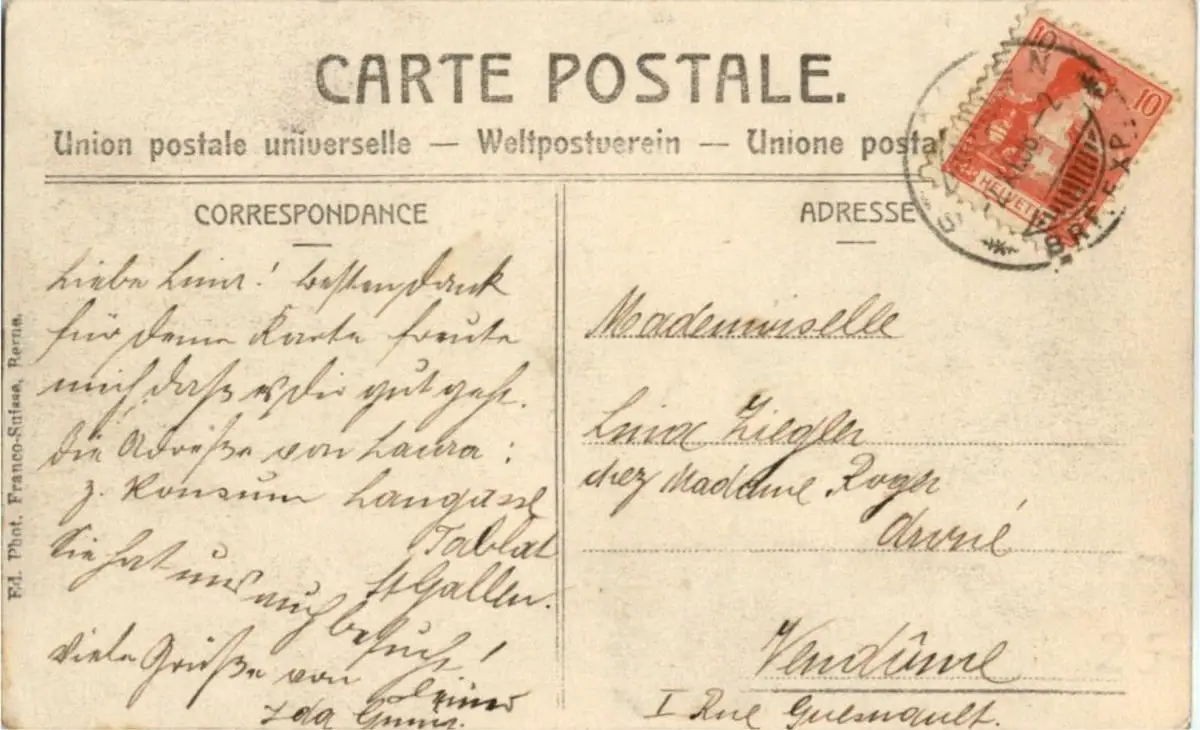 CARTE POSTALE.
Union postale universelle — Weltpostverein — Unione posta
CORRESPONDANCE
Liebe Lina! besten Dank
für deine Karte freute
mich daß es dir gut geht.
Die Adreße von Laura:
z. Konsum Langasse
Tablat
St Gallen.
Sie hat uns auch besucht!
Viele Grüße von
Ida
ADRESSE
Mademoiselle
Lina Ziegler
chez Madame Roger
Vendôme
I Rue Guesnault.
10
10
HELVETI
BRF. EXP.
Ed. Phot. Franco-Suisse, Berne.